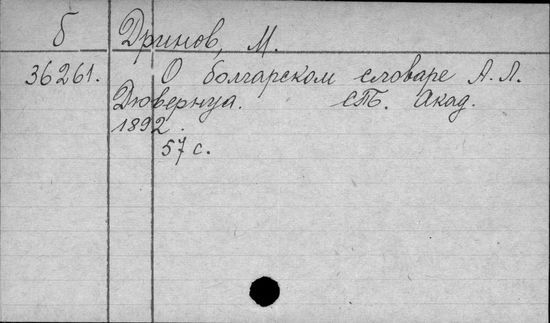 б Дринов, М.
36261. О болгарском словаре А. Л.
Дювернуа. СПб. Акад.
1892.
57 с.